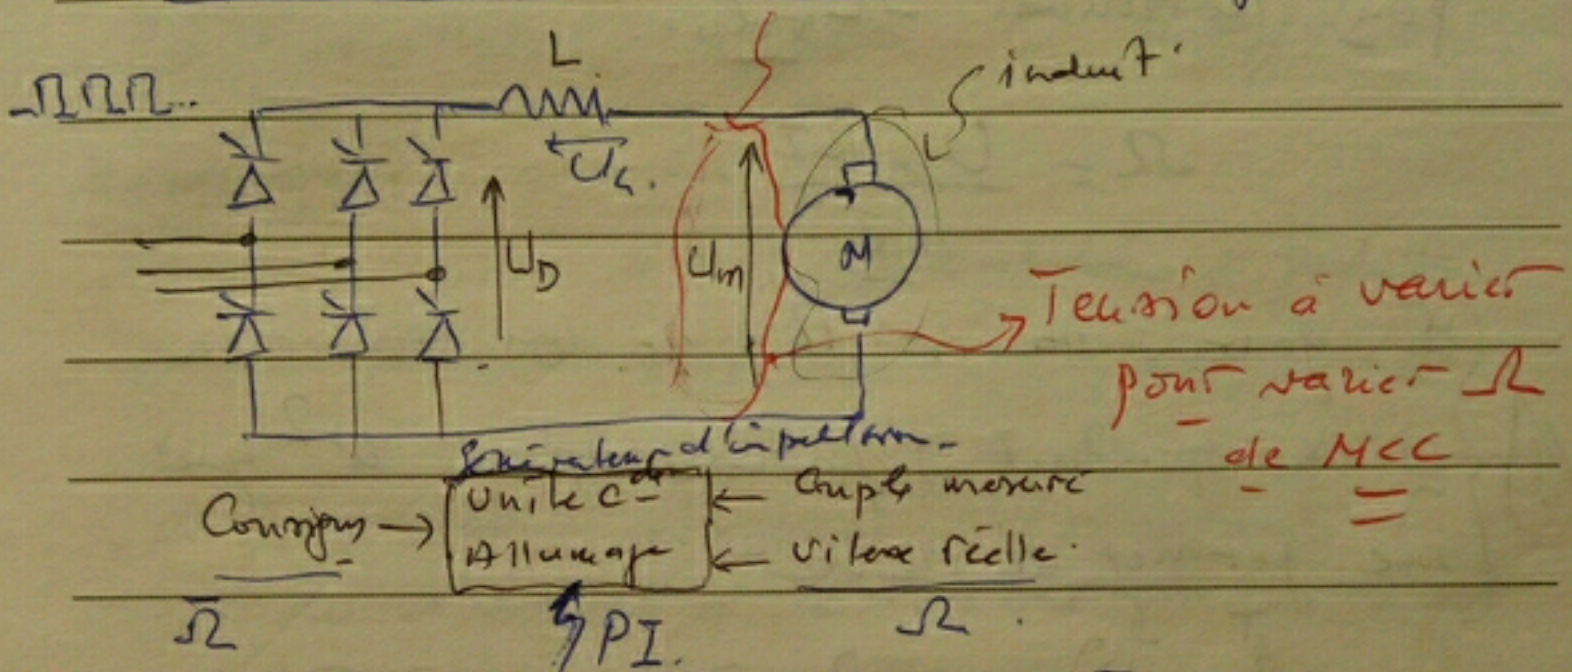 L
induit
U_L.
U_D
U_m
M
Tension à varier
pour varier Ω
de MCC
Générateur d'impulsion
Unité C^de
Allumage
Consigne
Couple mesuré
Vitesse réelle.
Ω
PI.
Ω.